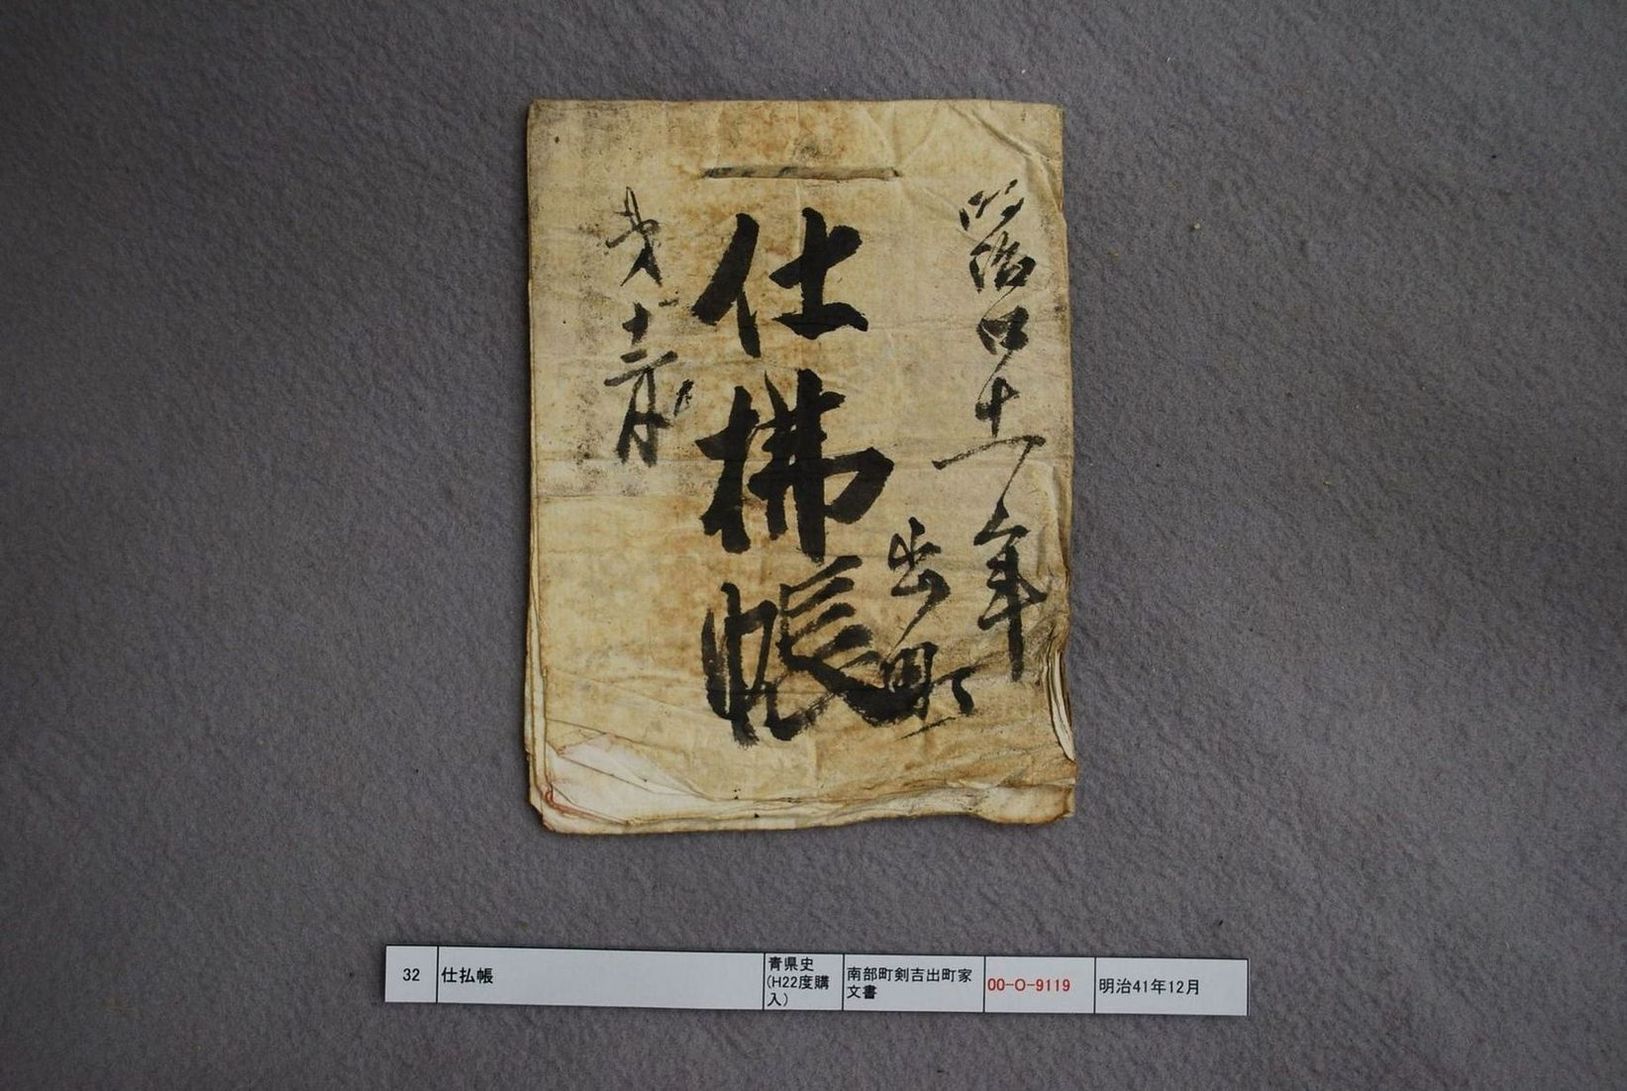 明治四十一年
出町
仕拂帳
第十二月
32
仕払帳
青県史
(H22度購
入)
南部町剣吉出町家
文書
00-O-9119
明治41年12月